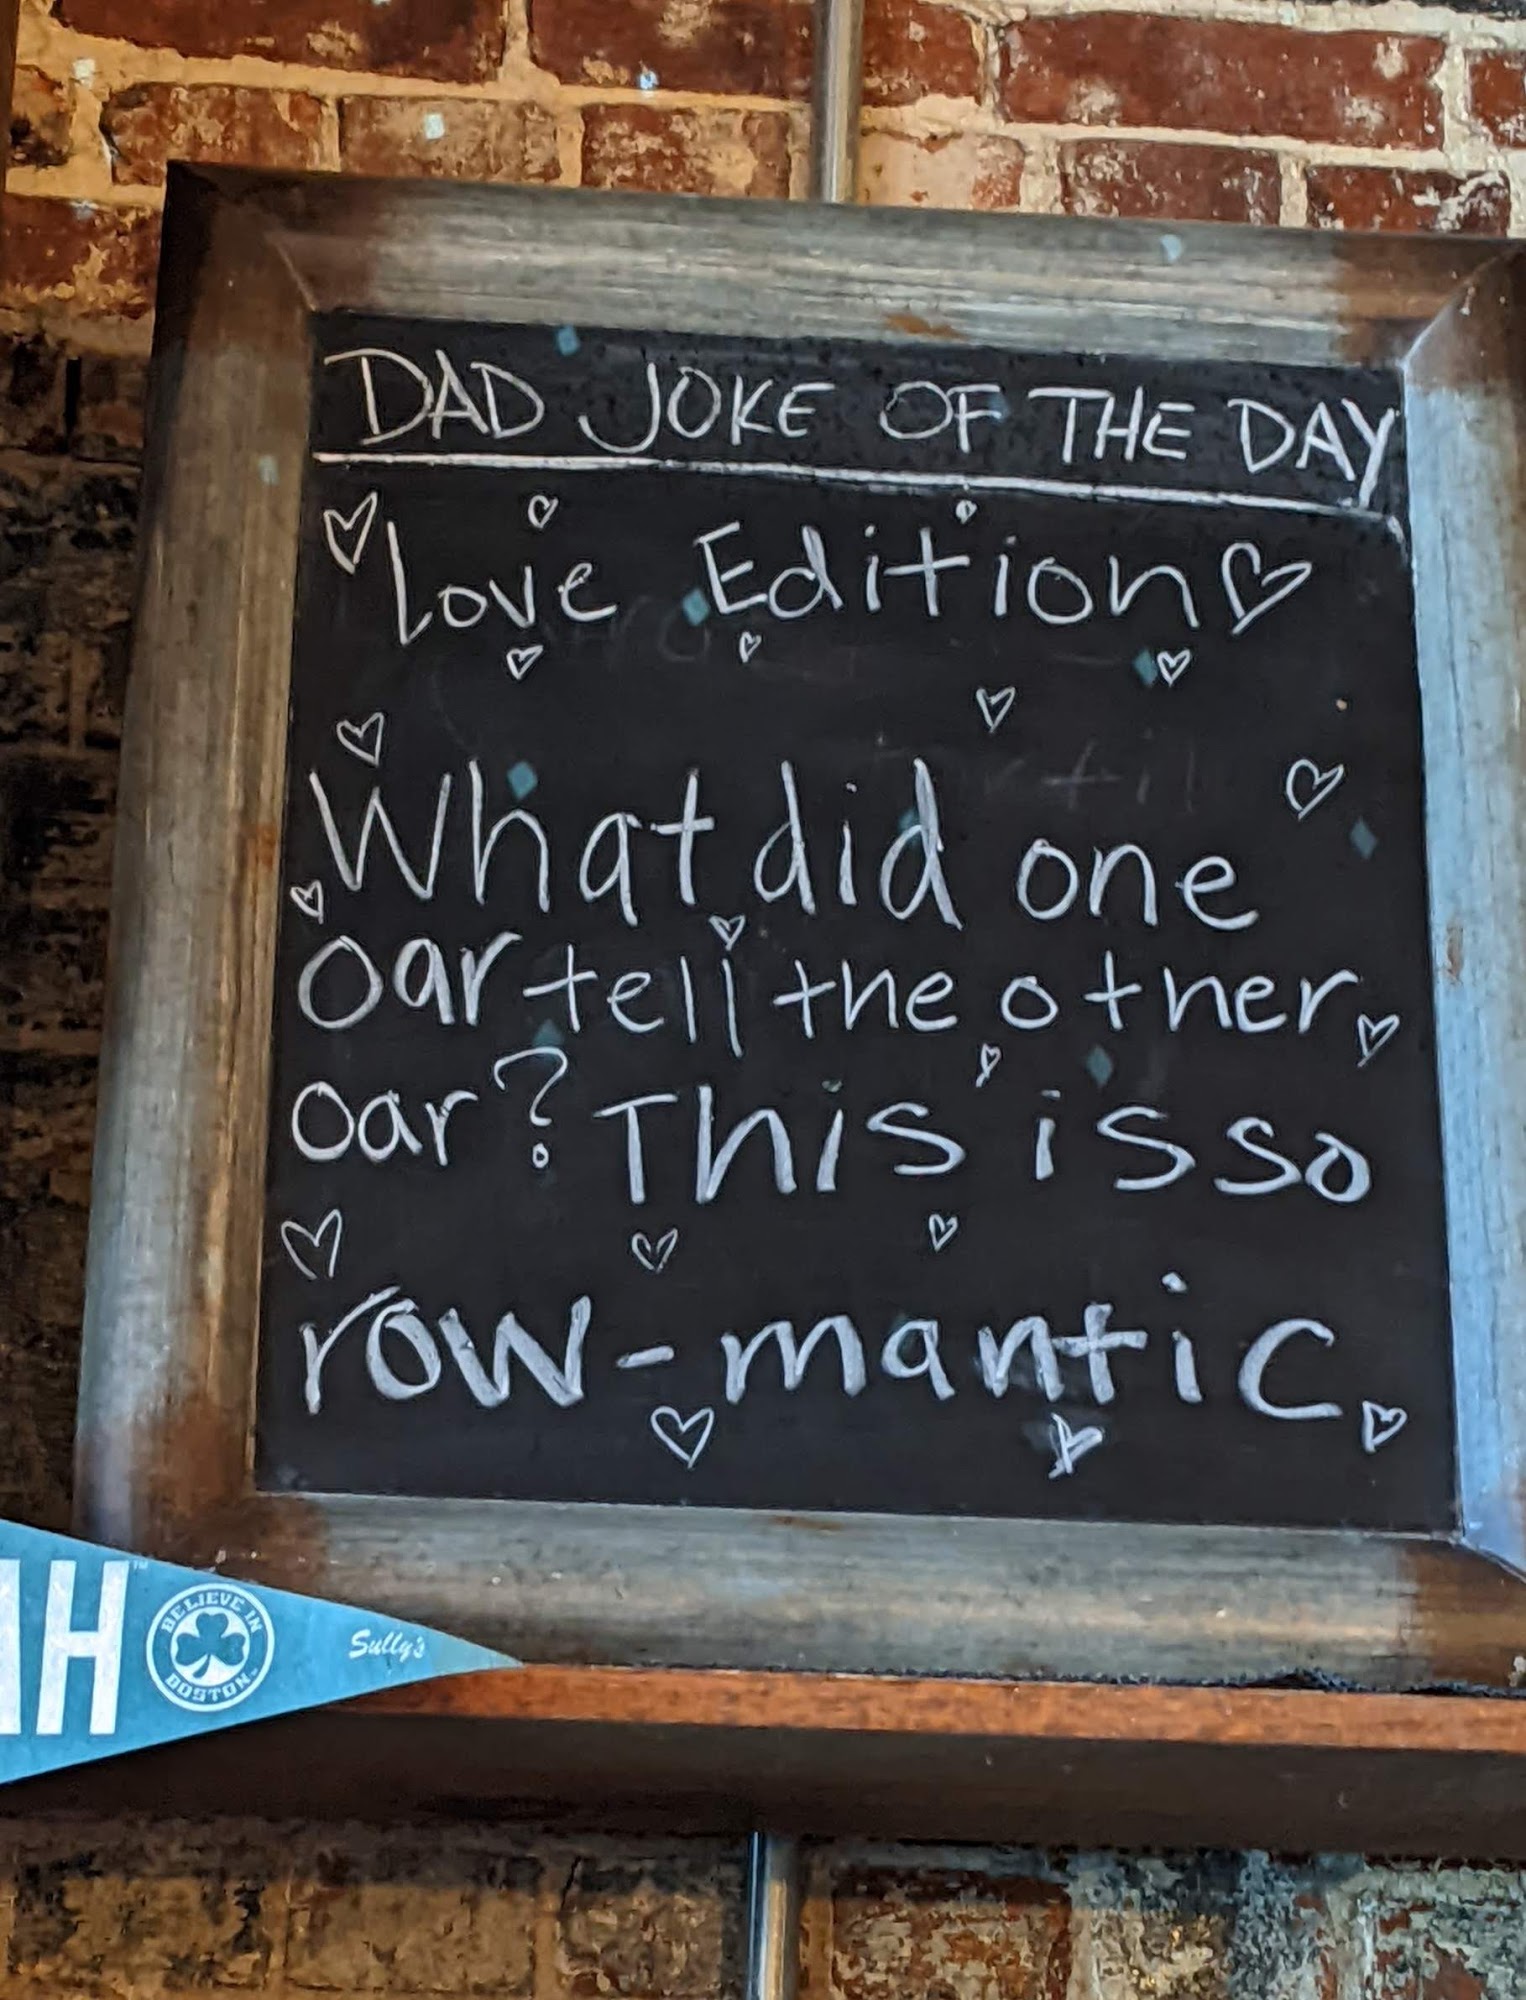 DAD JOKE OF THE DAY
Love Edition
What did one
oar tell the other
oar? This is so
row-mantic.
AH™
BELIEVE IN
BOSTON™
Sully's